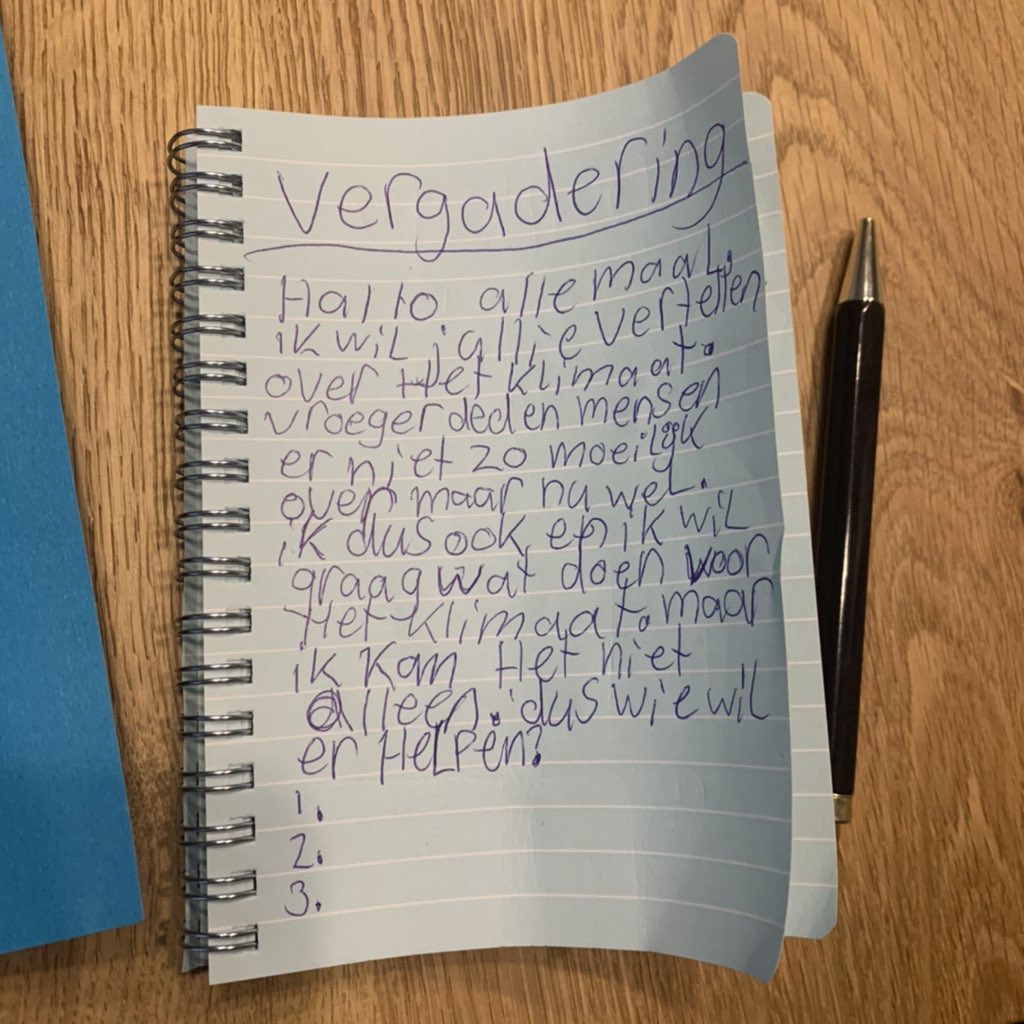 Vergadering
Hallo allemaal.
ik wil jallie vertellen
over Het klimaat.
vroeger deden mensen
er niet zo moeilijk
over maar nu wel.
ik dus ook en ik wil
graag wat doen voor
Het klimaat. maar
ik kan Het niet
alleen. dus wie wil
er Helpen?
1.
2.
3.